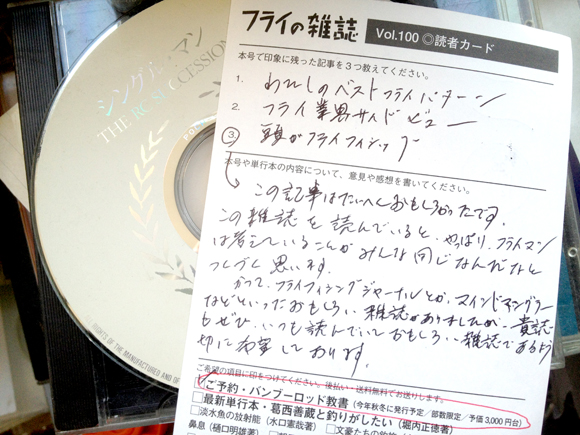 シングル・マン
THE RC SUCCESSION
RIGHTS OF THE MANUFACTURER AND OF
フライの雑誌
Vol.100 ◎読者カード
本号で印象に残った記事を3つ教えてください。
1. わたしのベストフライパターン
2. フライ業界サイドビュー
3. 頭がフライフィッシング
本号や単行本の内容について、意見や感想を書いてください。
この記事はたいへんおもしろかったです。
この雑誌を読んでいると、やっぱり、フライマン
は考えていることがみんな同じなんだなと
つくづく思います。
かつて、フライフィッシングジャーナルとか、マインドアングラー
などといったおもしろい雑誌がありましたが、貴誌
もぜひ、いつも読んでいておもしろい雑誌であるよう
切に希望しております。
ご希望の項目に印をつけてください。後払い・送料無料でお送りします。
ご予約・バンブーロッド教書（今年秋冬に発行予定／部数限定／予価3,000円台）
□最新単行本・葛西善蔵と釣りがしたい（堀内正徳著）
□淡水魚の放射能（水口憲哉著） □文豪たちの
鼻息（樋口明雄著）